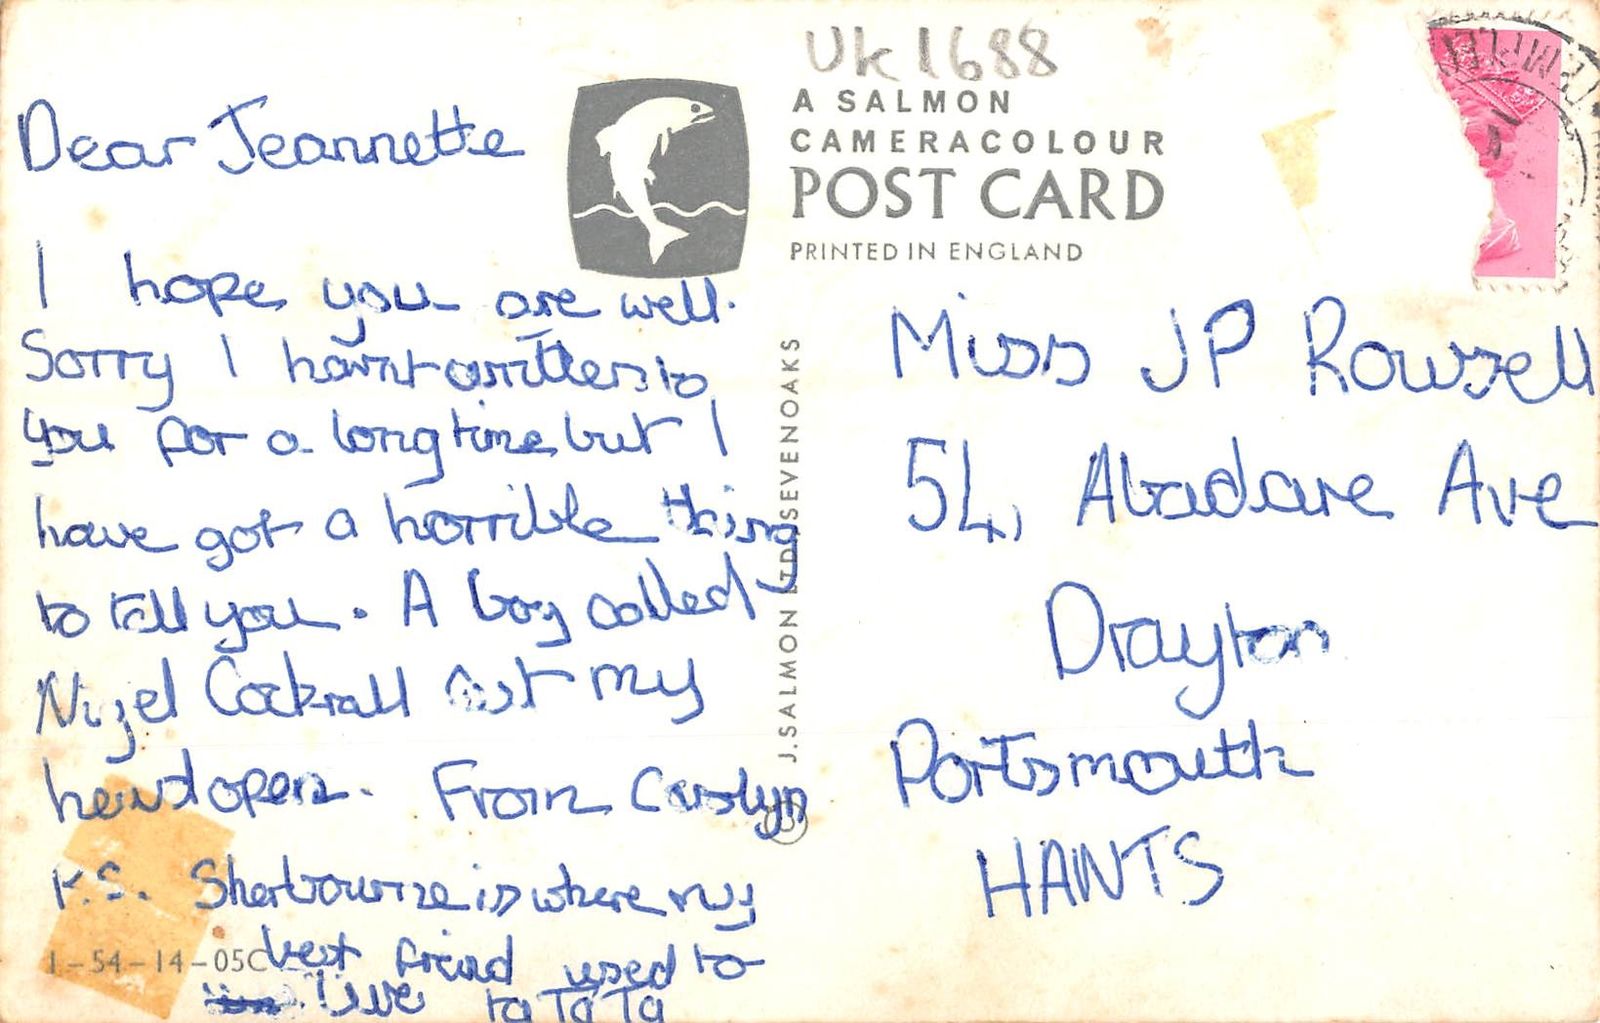 Uk 1688
A SALMON
CAMERACOLOUR
POST CARD
PRINTED IN ENGLAND
Dear Jeannette
I hope you are well.
Sorry I havnt written to
you for a long time but I
have got a horrible thing
to tell you. A boy called
Nigel Cockrall cut my
head open. From Carolyn
P.S. Sherbourne is where my
best friend used to
live ta Ta Ta
1-54-14-05C
J. SALMON LTD SEVENOAKS
Miss JP Rowsell
54, Abadare Ave
Drayton
Portsmouth
HANTS